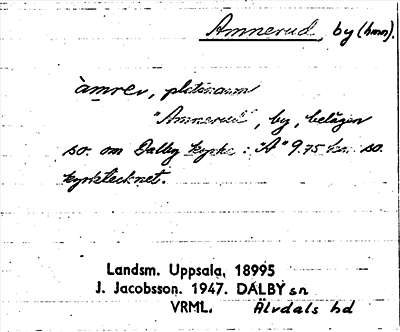 Amnerud, by (hmn).
àmrev, platsnamn
"Amnerud", by, belägen
so. om Dalby kyrka: "A" 9.75 km. so.
kyrktecknet.
Landsm. Uppsala, 18995
J. Jacobsson. 1947. DALBY sn
VRML. Älvdals hd